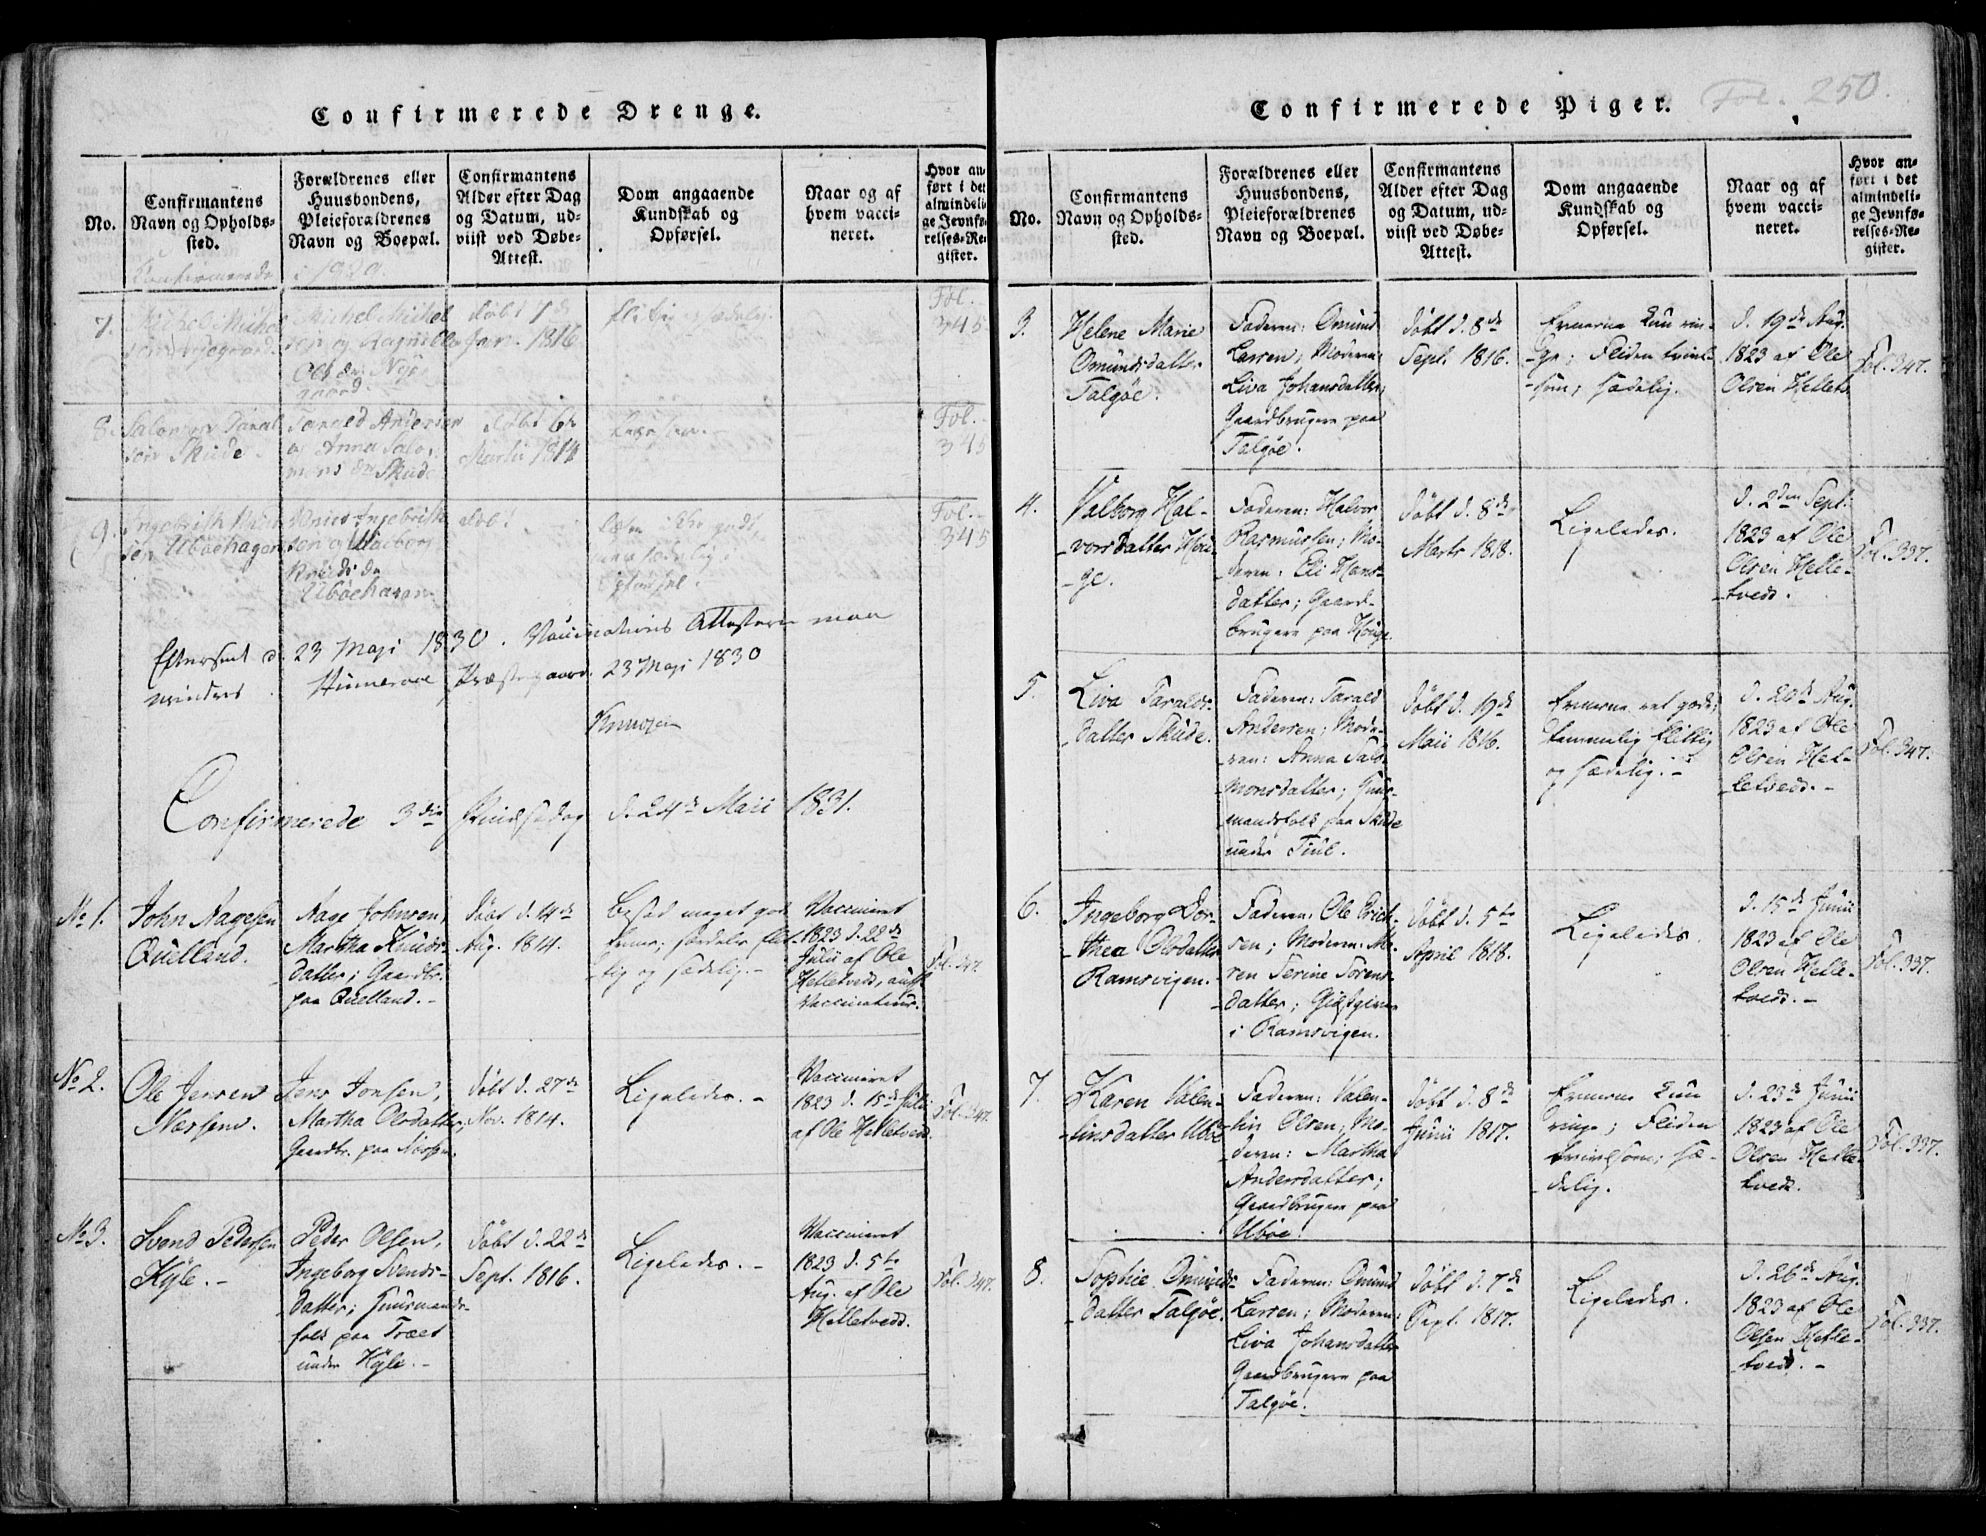 Confirmerede Drenge.
No.
Confirmantens
Navn og Opholds-
sted.
Forældrenes eller
Huusbondens,
Pleieforældrenes
Navn og Boepæl.
Confirmantens
Alder efter Dag
og Datum, ud-
viist ved Døbe-
Attest.
Dom angaaende
Kundskab og
Opførsel.
Naar og af
hvem vacci-
neret.
Hvor an-
ført i det
almindeli-
ge Jevnfø-
relses-Re-
gister.
Confirmerede
7.
Michel Michel
sen
Michel Michel
sen og Ragnilda
Døbt 7de
Jan. 1816
Fol.
345
8.
sen Skude.
Tarald Andersen
og Anna Salo-
mons Dr Skude
Døbt 6te
Martii
Fol.
345
9.
Ingebrigt
sen Uboehagen
Ingebrigt
sen og
Knuds Dr
Uboehagen
Døbt
Fol.
345
Efterseet d. 23 Maji 1830. Vaccinations Attesterne maa
Præstegaard 23 Maji 1830
Confirmerede 3die Pindsedag d. 24de Maii 1831.
No 1.
John Aagesen
Quelland.
Aage Johnsen,
Martha Knuds-
datter; Gaardbr.
paa Quelland.-
Døbt d. 14de
Aug. 1814.
Besad meget god
flit-
tig og sædelig.-
Vaccineret
1823 d. 22de
Julii af Ole
Helletvedt,
Vaccinateur.
Fol. 347.
No 2.
Ole Jensen
Nærsen.
Jens Jonsen,
Martha Olsdatter,
Gaardbr. paa
Døbt d. 27de
Nov. 1814.
Ligeledes.-
Vaccineret
1823 d. 15de Julii
af Ole Helletvedt.
Fol. 347.
No 3.
Svend Pedersen
Kyle.-
Peder Olsen,
Ingeborg Svends-
datter; Huusmands-
folk paa Træet
under Kyle.-
Døbt d. 22de
Sept. 1816.
Ligeledes.-
Vaccineret
1823 d. 5te
Aug. af Ole
Helletvedt.
Fol. 347.
Confirmerede Piger.
Fol. 250.
No.
Confirmantens
Navn og Opholds-
sted.
Forældrenes eller
Huusbondens,
Pleieforældrenes
Navn og Boepæl.
Confirmantens
Alder efter Dag
og Datum, ud-
viist ved Døbe-
Attest.
Dom angaaende
Kundskab og
Opførsel.
Naar og af
hvem vacci-
neret.
Hvor an-
ført i det
almindeli-
ge Jevnfø-
relses-Re-
gister.
3.
Helene Marie
Omundsdatter
Talgøe.
Faderen: Omund
Larsen; Moderen:
Liva Johansdatter;
Gaardbrugere paa
Talgøe.
Døbt d. 8de
Sept. 1816.
Evnerne kun rin-
ge; Fliden tvivl-
som; sædelig.
d. 19de Aug.
1823 af Ole
Olsen Hellets
Fol. 347.
4.
Valborg Hal-
vorsdatter Hou-
ge.
Faderen: Halvor
Rasmussen; Mo-
deren: Eli Hans-
datter; Gaard-
brugere paa Houge
Døbt d. 8de
Marts 1818.
Ligeledes.
d. 2den Sept.
1823 af Ole
Olsen Helle-
tvedt.
Fol. 337.
5.
Liva Taralds-
datter Skude.
Faderen: Tarald
Andersen; Mode-
ren: Anna Salo-
monsdatter; Huus-
mandsfolk paa Skude
under Tiul.
Døbt d. 19de
Maii 1816.
Evnerne ret gode;
temmelig flittig
og sædelig.-
d. 20de Aug.
1823 af Ole
Olsen Hel-
letvedt.-
Fol. 347.
6.
Ingeborg Dor-
thea Olsdatter
Ramsvigen.
Faderen: Ole Erich-
sen; Moderen: Ma-
ren Serine Sørens-
datter; Gjæstgiver
i Ramsvigen.
Døbt d. 5te
April 1818.
Ligeledes.
d. 15de Junii
1823 af Ole
Olsen Helle-
tvedt.-
Fol. 337.
7.
Karen Valen-
tinsdatter Uboe
Faderen: Valen-
tin Olsen; Mo-
deren: Martha
Andersdatter;
Gaardbrugere paa
Uboe.
Døbt d. 8de
Junii 1817.
Evnerne kun
ringe; Fliden
tvivlsom; sæ-
delig.
d. 23de Junii
1823 af Ole
Olsen Helle-
tvedt.
Fol. 337.
8.
Sophie Omunds-
datter Talgøe.
Faderen: Omund
Larsen; Moderen:
Liva Johansdatter
Gaardbrugere paa
Talgøe.
Døbt d. 7de
Sept. 1817.
Ligeledes.
d. 26de Aug.
1823 af Ole
Olsen Helle-
tvedt.-
Fol. 337.